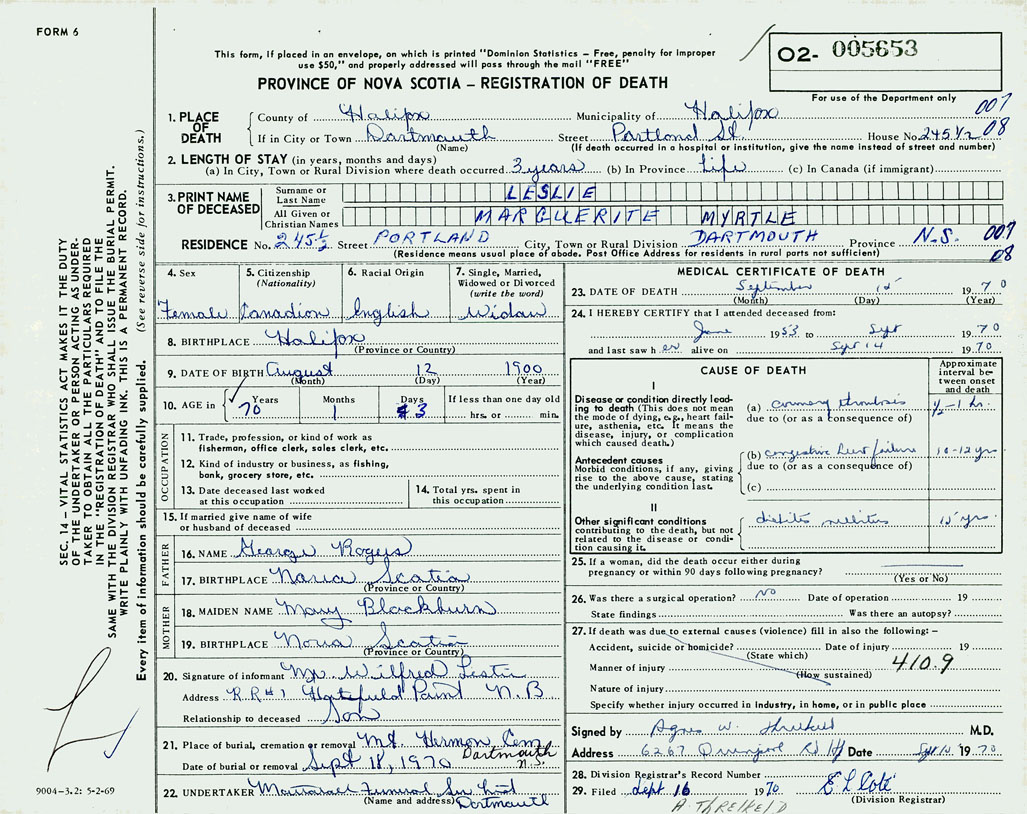 FORM 6
This form, if placed in an envelope, on which is printed "Dominion Statistics – Free, penalty for improper
use $50," and properly addressed will pass through the mail "FREE"
O2- 005653
PROVINCE OF NOVA SCOTIA – REGISTRATION OF DEATH
For use of the Department only
1. PLACE OF DEATH
County of Halifax Municipality of Halifax 007
If in City or Town Dartmouth Street Portland St. House No. 245 1/2 08
(Name) (If death occurred in a hospital or institution, give the name instead of street and number)
2. LENGTH OF STAY (in years, months and days)
(a) In City, Town or Rural Division where death occurred 3 years (b) In Province Life (c) In Canada (if immigrant)
3. PRINT NAME OF DECEASED
Surname or Last Name LESLIE
All Given or Christian Names MARGUERITE MYRTLE
RESIDENCE No. 245 1/2 Street PORTLAND City, Town or Rural Division DARTMOUTH Province N.S. 007
(Residence means usual place of abode. Post Office Address for residents in rural parts not sufficient) 08
4. Sex
Female
5. Citizenship
(Nationality)
Canadian
6. Racial Origin
English
7. Single, Married,
Widowed or Divorced
(write the word)
Widow
8. BIRTHPLACE Halifax
(Province or Country)
9. DATE OF BIRTH August 12 1900
(Month) (Day) (Year)
10. AGE in
Years Months Days If less than one day old
70 1 3 hrs. or min.
OCCUPATION
11. Trade, profession, or kind of work as
fisherman, office clerk, sales clerk, etc.
12. Kind of industry or business, as fishing,
bank, grocery store, etc.
13. Date deceased last worked
at this occupation
14. Total yrs. spent in
this occupation
15. If married give name of wife
or husband of deceased
FATHER
16. NAME George Rogers
17. BIRTHPLACE Nova Scotia
(Province or Country)
MOTHER
18. MAIDEN NAME Mary Blackburn
19. BIRTHPLACE Nova Scotia
(Province or Country)
20. Signature of informant Mr. Wilfred Leslie
Address R.R#1 Point N.B
Relationship to deceased Son
21. Place of burial, cremation or removal Mt. Hermon Cem
Dartmouth
Date of burial or removal Sept 18, 1970 N.S.
22. UNDERTAKER Funeral Ltd
(Name and address) Dartmouth
MEDICAL CERTIFICATE OF DEATH
23. DATE OF DEATH September 15 1970
(Month) (Day) (Year)
24. I HEREBY CERTIFY that I attended deceased from:
June 1953 to Sept 1970
and last saw her alive on Sept 14 1970
CAUSE OF DEATH
Approximate
interval be-
tween onset
and death
I
Disease or condition directly lead-
ing to death (This does not mean
the mode of dying, e.g., heart fail-
ure, asthenia, etc. It means the
disease, injury, or complication
which caused death.)
(a) coronary thrombosis 1/2–1 hr.
due to (or as a consequence of)
Antecedent causes
Morbid conditions, if any, giving
rise to the above cause, stating
the underlying condition last.
(b) congestive heart failure 10-12 yrs
due to (or as a consequence of)
(c)
II
Other significant conditions
contributing to the death, but not
related to the disease or condi-
tion causing it.
diabetes mellitus 15 yrs.
25. If a woman, did the death occur either during
pregnancy or within 90 days following pregnancy?
(Yes or No)
26. Was there a surgical operation? No Date of operation 19
State findings Was there an autopsy?
27. If death was due to external causes (violence) fill in also the following: –
Accident, suicide or homicide? Date of injury 19
(State which)
Manner of injury 410.9
(How sustained)
Nature of injury
Specify whether injury occurred in industry, in home, or in public place
Signed by Agnes W. Threlkeld M.D.
Address 6267 Rd Hfx Date Sept 1970
28. Division Registrar's Record Number
29. Filed Sept 16 1970 E L Cote
(Division Registrar)
A. THRELKELD
SEC. 14 – VITAL STATISTICS ACT MAKES IT THE DUTY
OF THE UNDERTAKER OR PERSON ACTING AS UNDER-
TAKER TO OBTAIN ALL THE PARTICULARS REQUIRED
IN THE "REGISTRATION OF DEATH" AND TO FILE THE
SAME WITH THE DIVISION REGISTRAR WHO SHALL ISSUE THE BURIAL PERMIT.
WRITE PLAINLY WITH UNFADING INK. THIS IS A PERMANENT RECORD.
Every item of information should be carefully supplied. (See reverse side for instructions.)
9004-3.2: 5-2-69